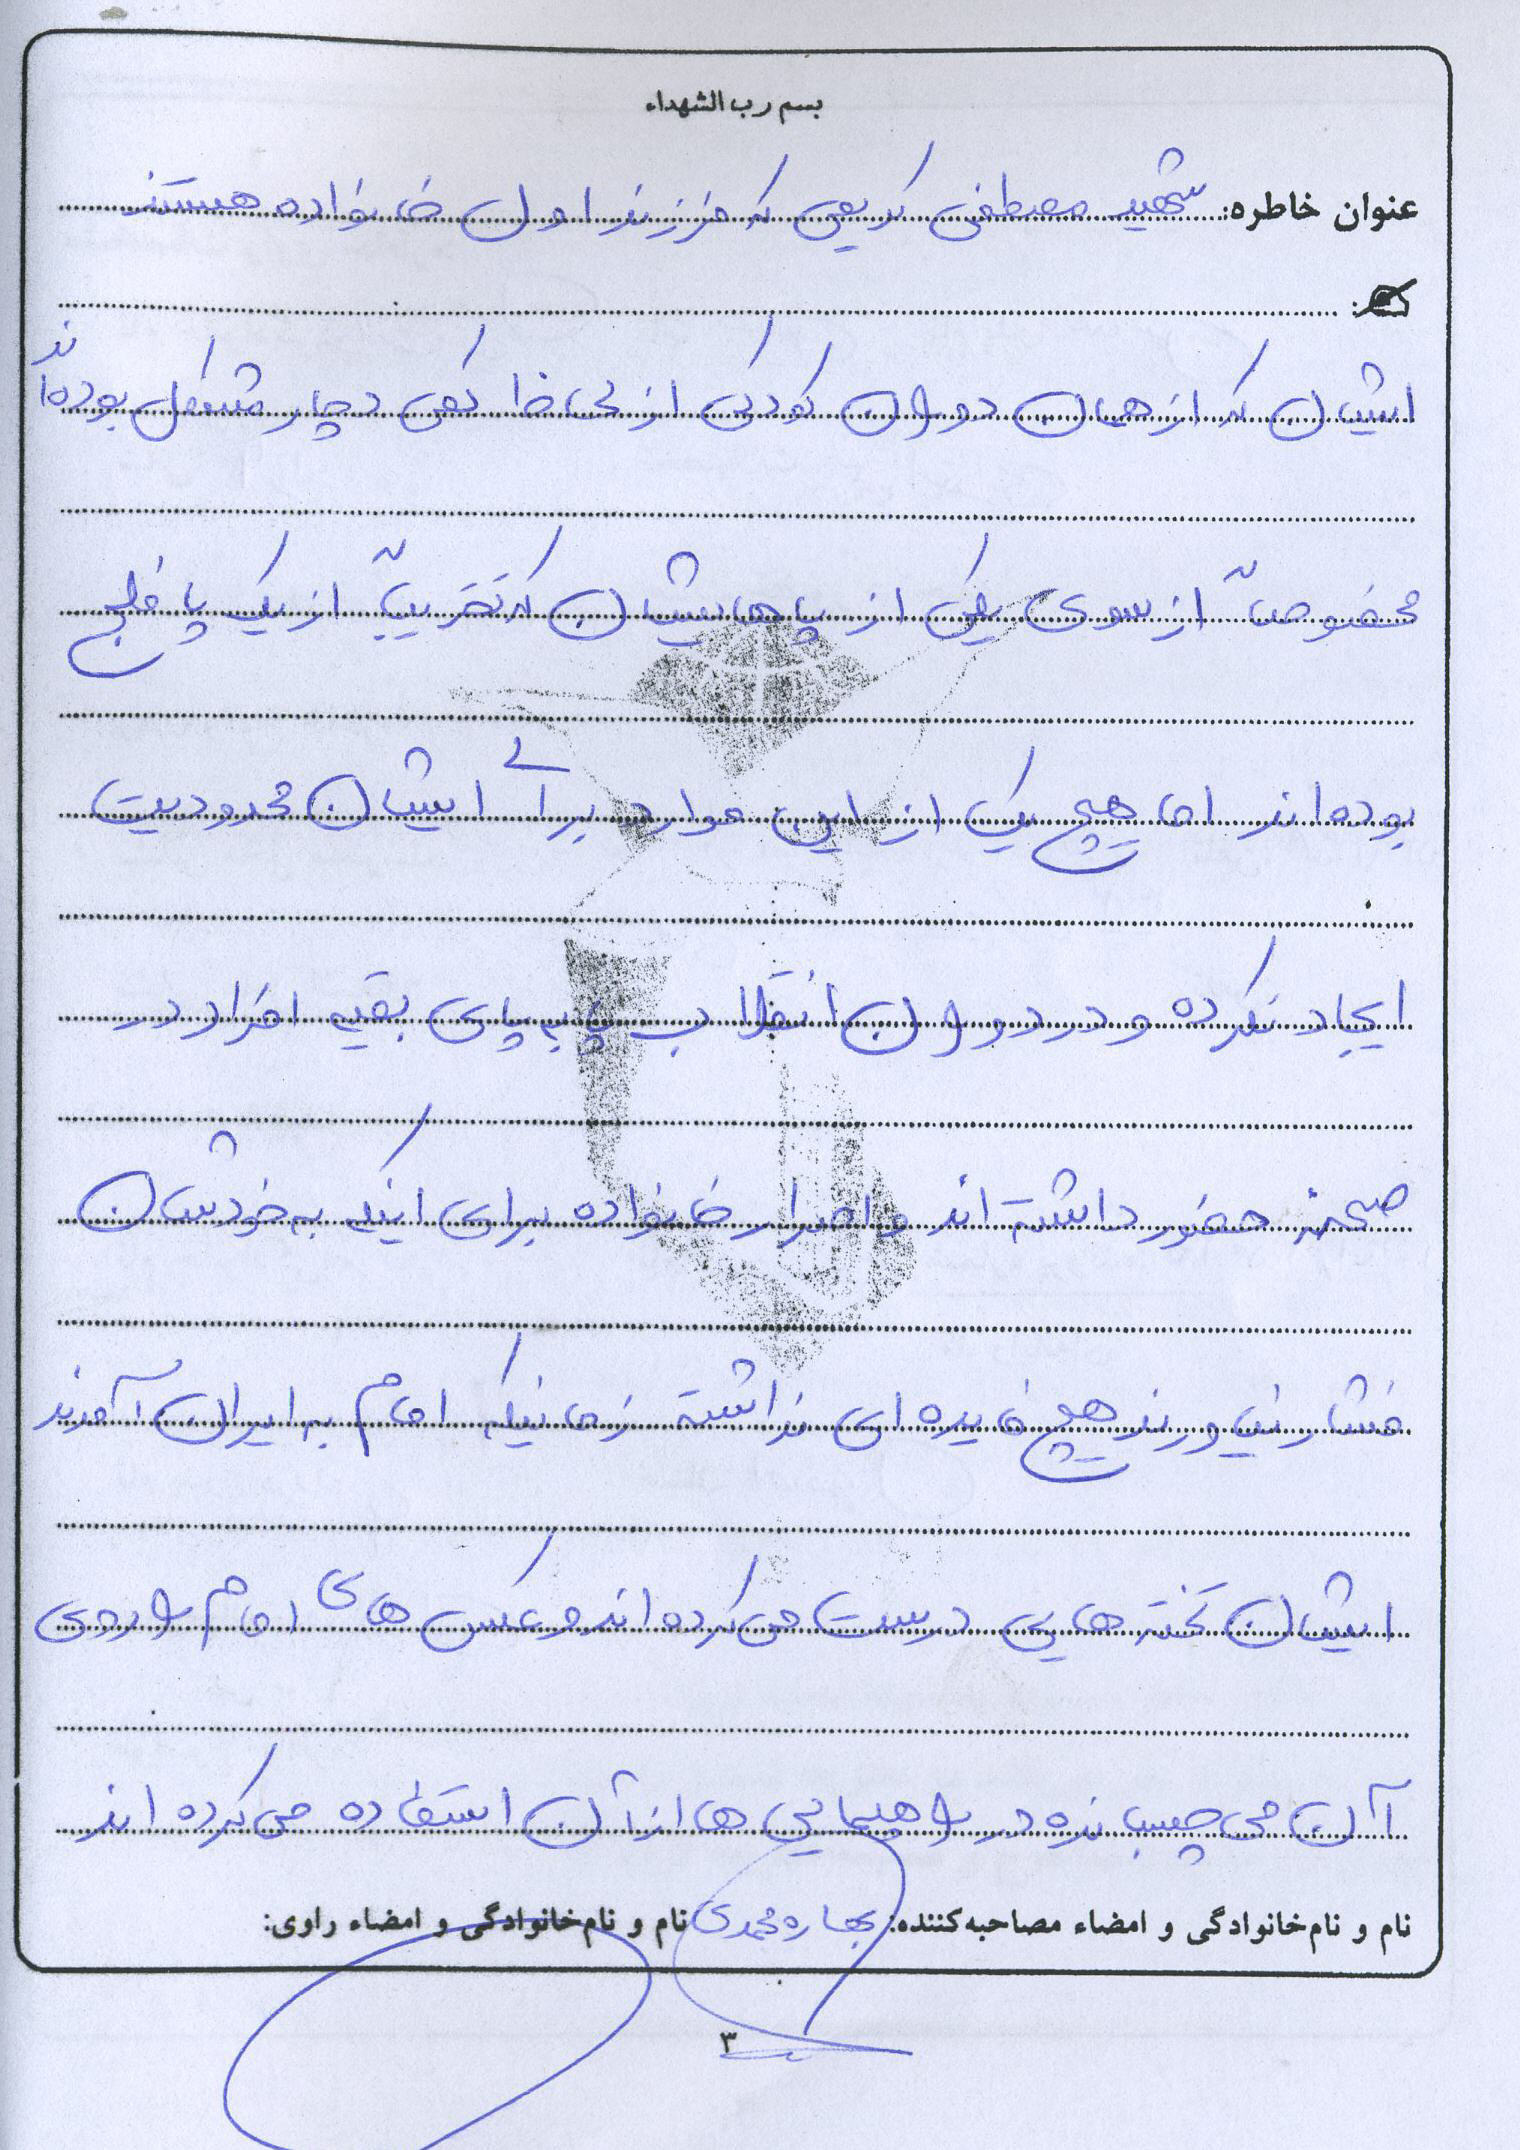 بسم رب الشهداء
عنوان خاطره: شهید مصطفی کریمی که فرزند اول خانواده هستند
ایشان که از همان دوران کودکی از لحاظ کمی دچار مشکل بوده‌اند
مخصوصاً از سوی یکی از پاهایشان که تقریباً از یک پا فلج
بوده‌اند اما هیچ یک از این موارد برای ایشان محدودیت
ایجاد نکرده و در دوران انقلاب پا به پای بقیه افراد در
صحنه حضور داشته‌اند و اصرار خانواده برای اینکه به خودشان
فشار نیاورند هیچ فایده‌ای نداشته زمانیکه امام به ایران آمدند
ایشان تخته‌هایی درست می‌کرده‌اند و عکس‌های امام را روی
آن می‌چسبانده در راهپیمایی‌ها از آن استفاده می‌کرده‌اند
نام و نام‌خانوادگی و امضاء مصاحبه‌کننده: بهاره محمدی نام و نام‌خانوادگی و امضاء راوی:
۳